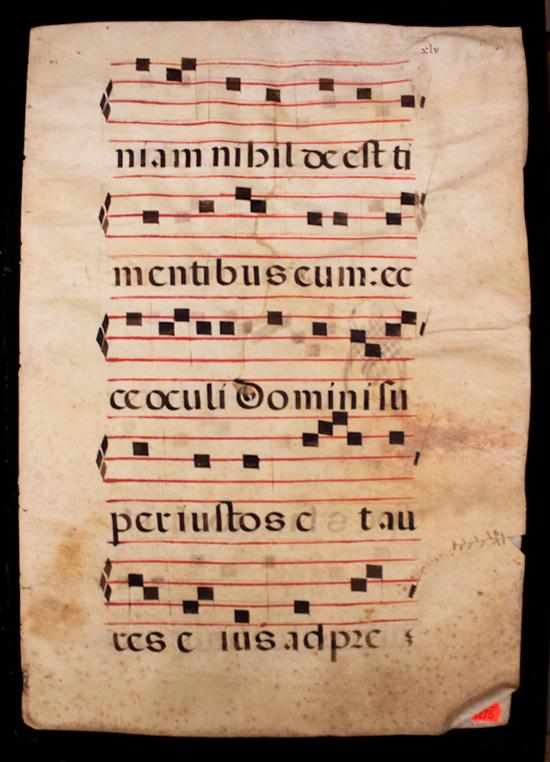 xlv
niam nihil de est ti
mentibus eum: ec
ce oculi Domini su
per iustos e t au
res e ius ad pre